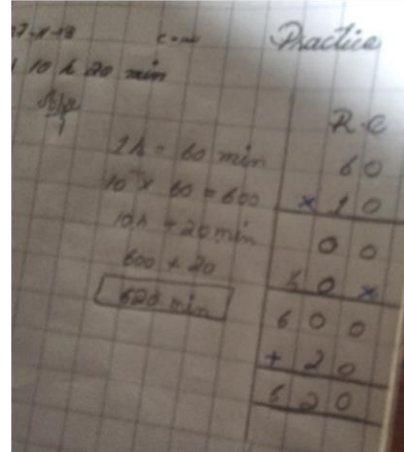 Practice
10 h 20 min
1h = 60 min
10 x 60 = 600
10h + 20 min
600 + 20
620 min
R.C
60
x 10
00
60x
600
+ 20
620